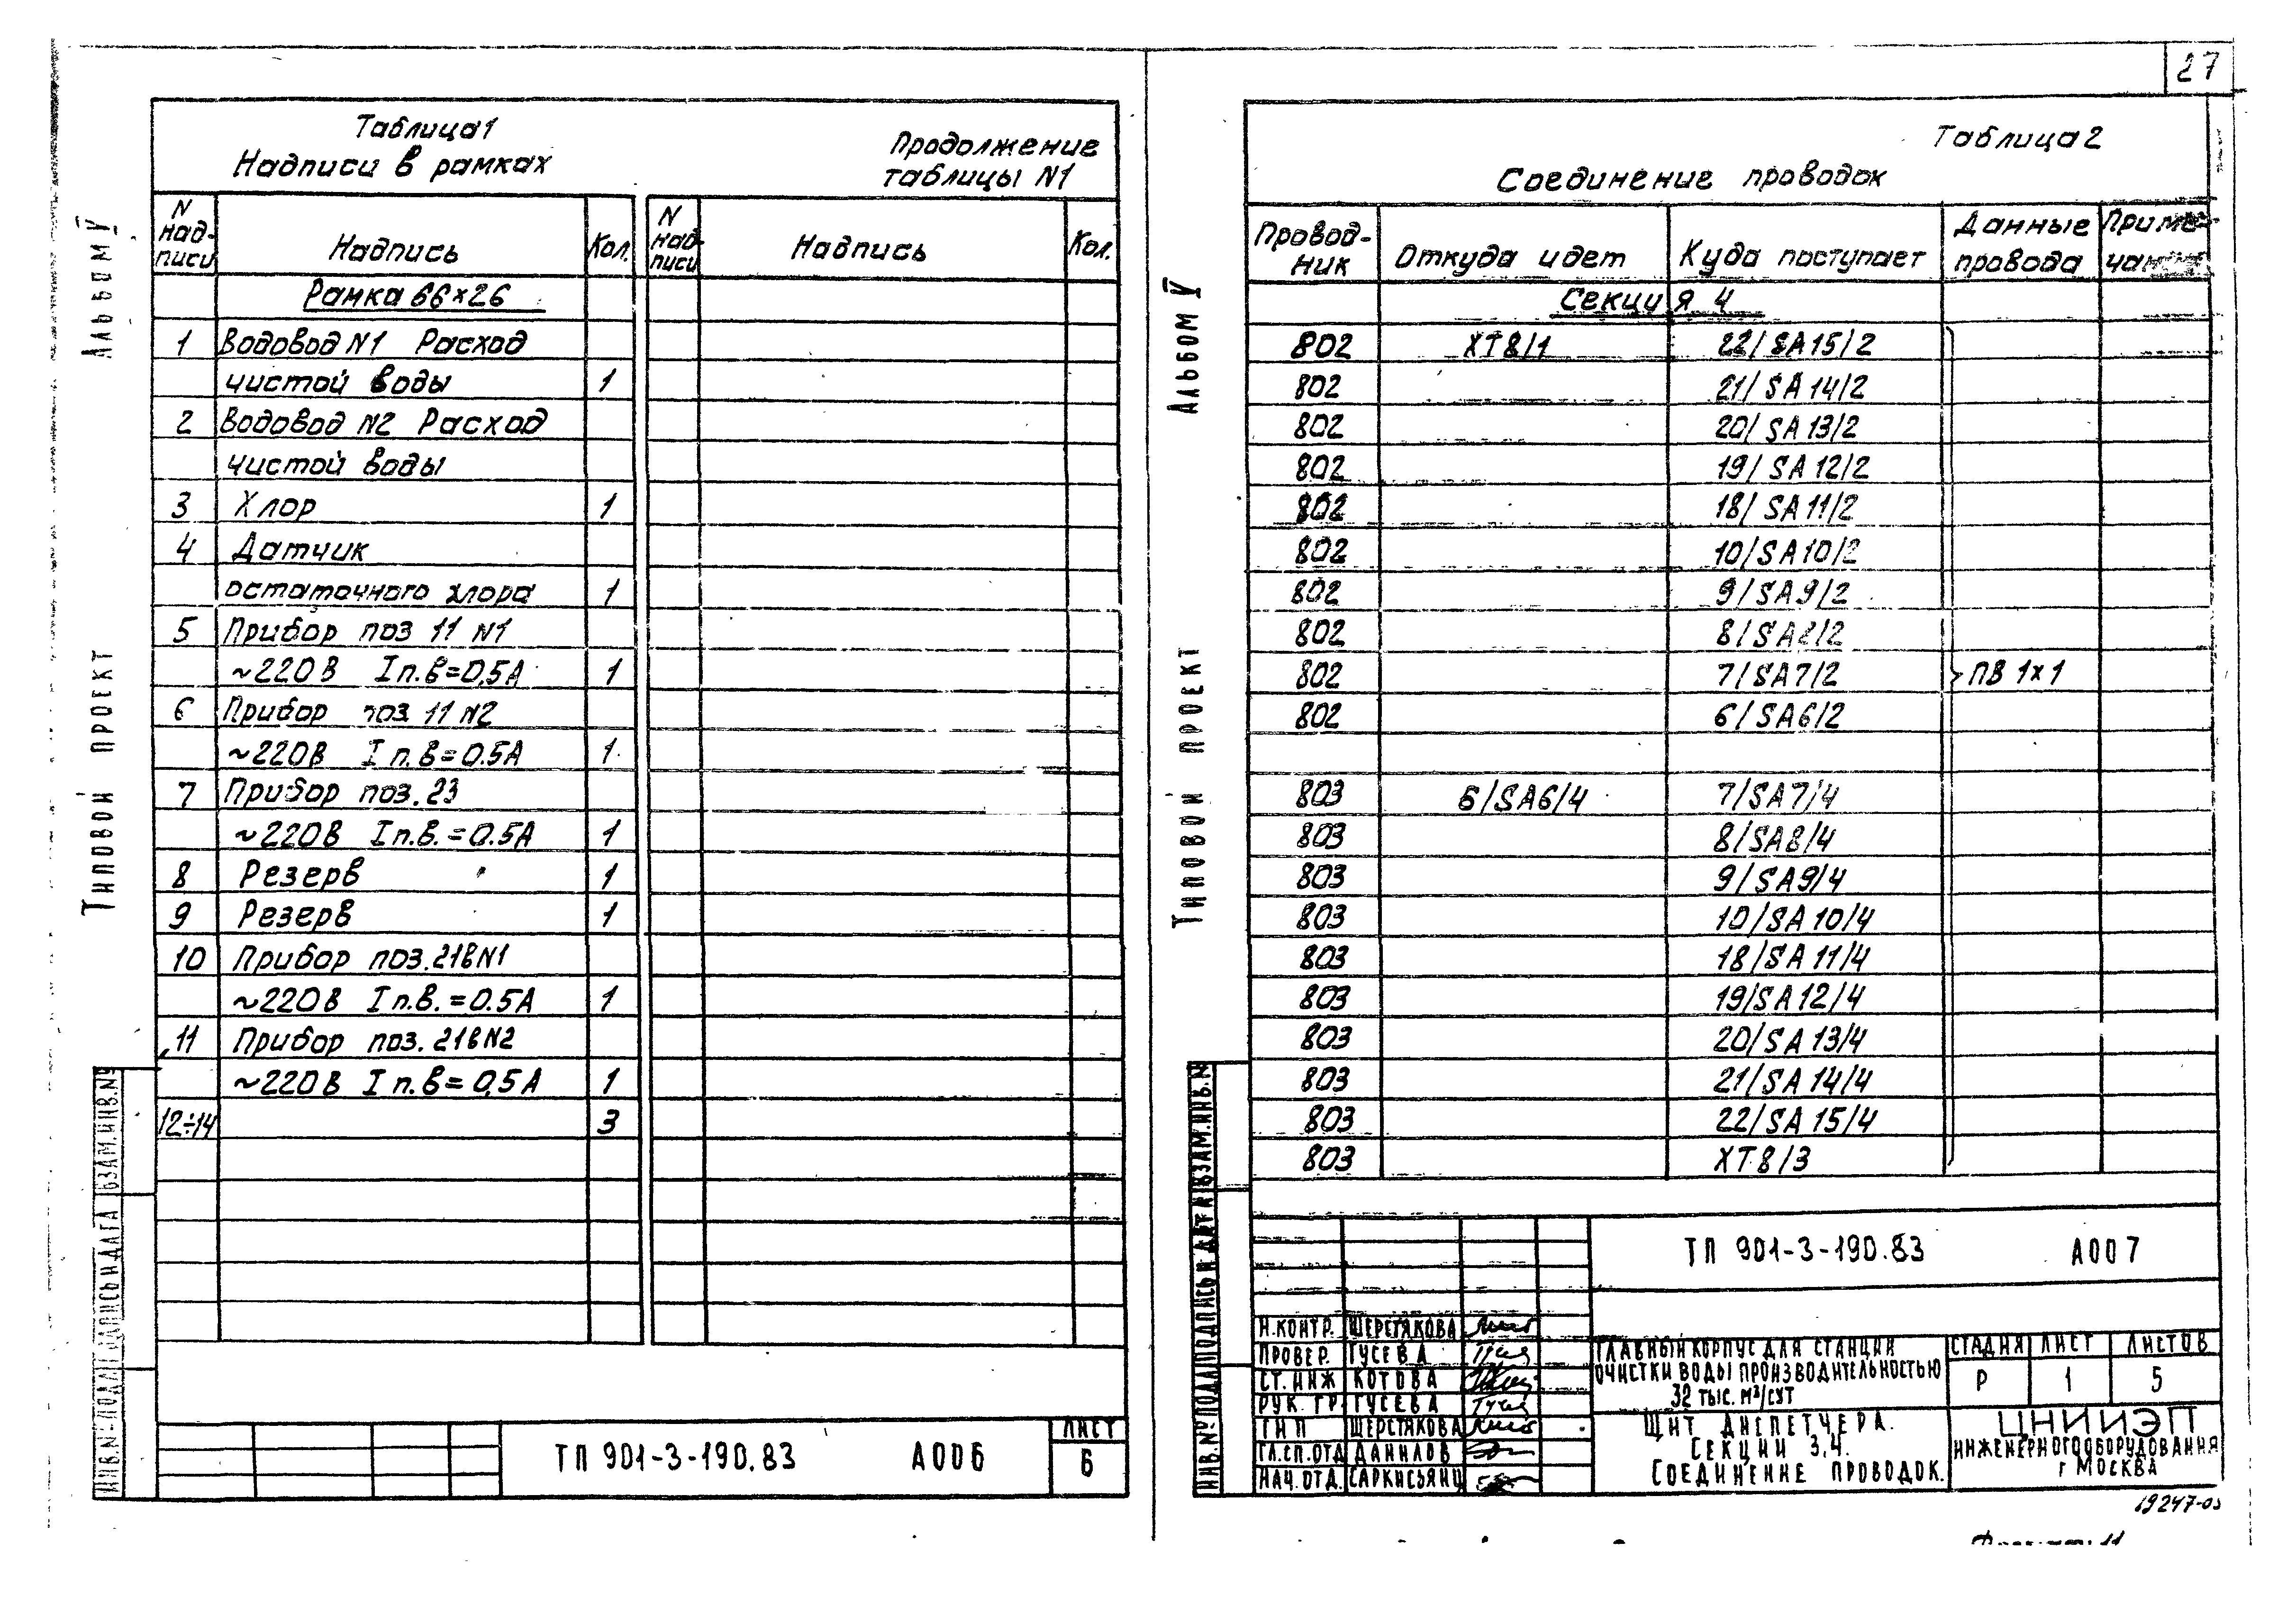 27
Альбом V
Типовой проект
Таблица 1
Надписи в рамках
Продолжение
таблицы N1
N надписи Надпись Кол. N надписи Надпись Кол.
Рамка 66×26
1 Водовод N1 Расход
чистой воды 1
2 Водовод N2 Расход
чистой воды
3 Хлор 1
4 Датчик
остаточного хлора 1
5 Прибор поз 11 N1
~220В Iп.в=0,5А 1
6 Прибор поз 11 N2
~220В Iп.в=0.5А 1
7 Прибор поз.23
~220В Iп.в.=0.5А 1
8 Резерв 1
9 Резерв 1
10 Прибор поз.21в N1
~220В Iп.в.=0.5А 1
11 Прибор поз.21в N2
~220В Iп.в=0,5А 1
12÷14 3
Инв.№ подл. Подпись и дата Взам.инв.№
ТП 901-3-190.83 А006
Лист
6
Альбом V
Типовой проект
Таблица 2
Соединение проводок
Проводник Откуда идет Куда поступает Данные провода Примечание
Секция 4
802 ХТ8/1 22/SA15/2
802 21/SA14/2
802 20/SA13/2
802 19/SA12/2
802 18/SA11/2
802 10/SA10/2
802 9/SA9/2
802 8/SA8/2
802 7/SA7/2 ПВ 1×1
802 6/SA6/2
803 6/SA6/4 7/SA7/4
803 8/SA8/4
803 9/SA9/4
803 10/SA10/4
803 18/SA11/4
803 19/SA12/4
803 20/SA13/4
803 21/SA14/4
803 22/SA15/4
803 ХТ8/3
Инв.№ подл. Подпись и дата Взам.инв.№
ТП 901-3-190.83 А007
Н.контр. Шерстякова
Провер. Гусева
Ст.инж Котова
Рук.гр. Гусева
ГИП Шерстякова
Гл.сп.отд Данилов
Нач.отд. Саркисьянц
Главный корпус для станции
очистки воды производительностью
32 тыс. м³/сут
Стадия Лист Листов
Р 1 5
Щит диспетчера.
Секции 3,4.
Соединение проводок.
ЦНИИЭП
инженерного оборудования
г Москва
19247-05